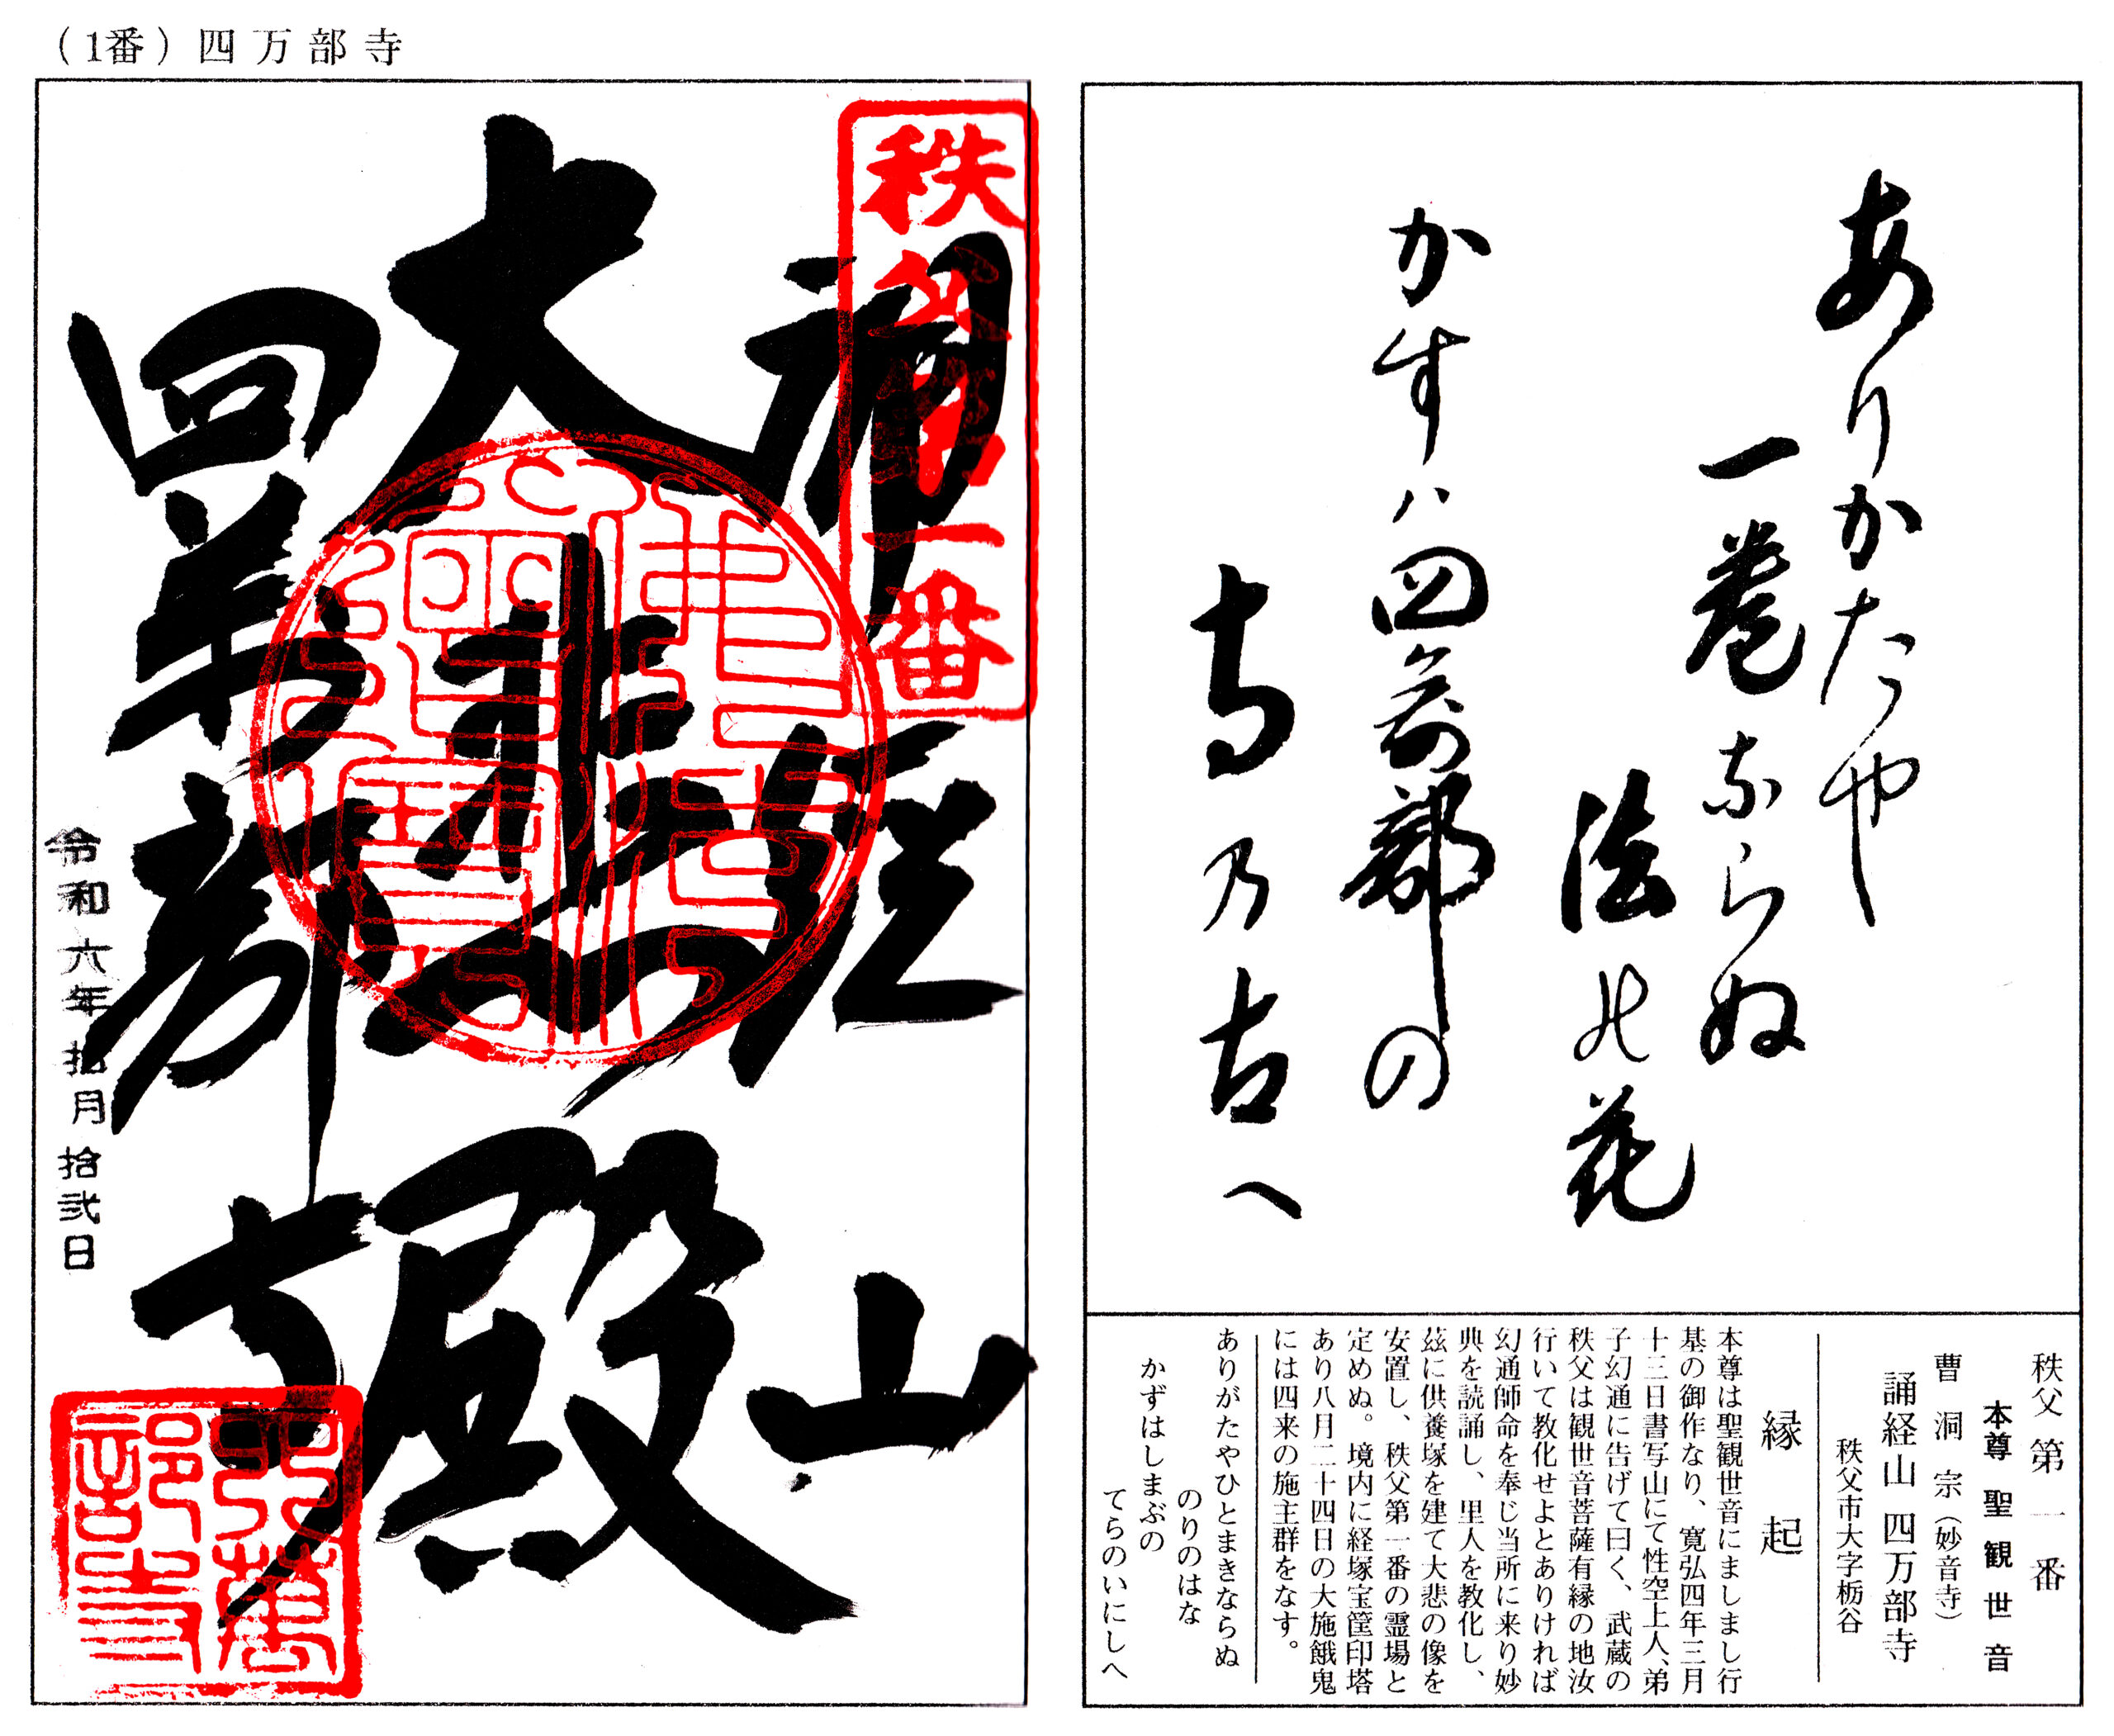 （1番）四万部寺
秩父第一番
ありかたや
一巻ならぬ
法の花
かすハ四萬部の
寺乃古へ
秩父第一番
本尊 聖観世音
曹洞宗（妙音寺）
誦経山 四万部寺
秩父市大字栃谷
縁起
本尊は聖観世音にましまし行
基の御作なり、寛弘四年三月
十三日書写山にて性空上人、弟
子幻通に告げて曰く、武蔵の
秩父は観世音菩薩有縁の地汝
行いて教化せよとありければ
幻通師命を奉じ当所に来り妙
典を読誦し、里人を教化し、
茲に供養塚を建て大悲の像を
安置し、秩父第一番の霊場と
定めぬ。境内に経塚宝筐印塔
あり八月二十四日の大施餓鬼
には四来の施主群をなす。
ありがたやひとまきならぬ
のりのはな
かずはしまぶの
てらのいにしへ
誦経山
大悲殿
四萬部寺
令和六年拾月拾弐日
四萬部寺